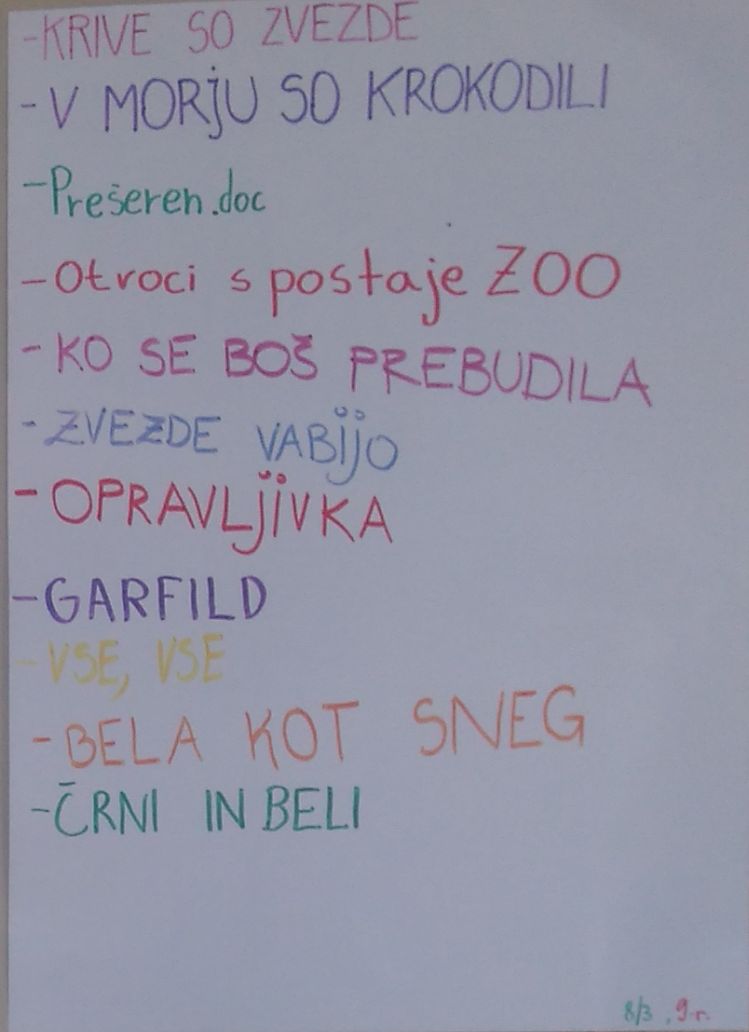 -KRIVE SO ZVEZDE
-V MORJU SO KROKODILI
-Prešeren.doc
-Otroci s postaje ZOO
-KO SE BOŠ PREBUDILA
-ZVEZDE VABIJO
-OPRAVLJIVKA
-GARFILD
-VSE, VSE
-BELA KOT SNEG
-ČRNI IN BELI
8/3, 9.r.